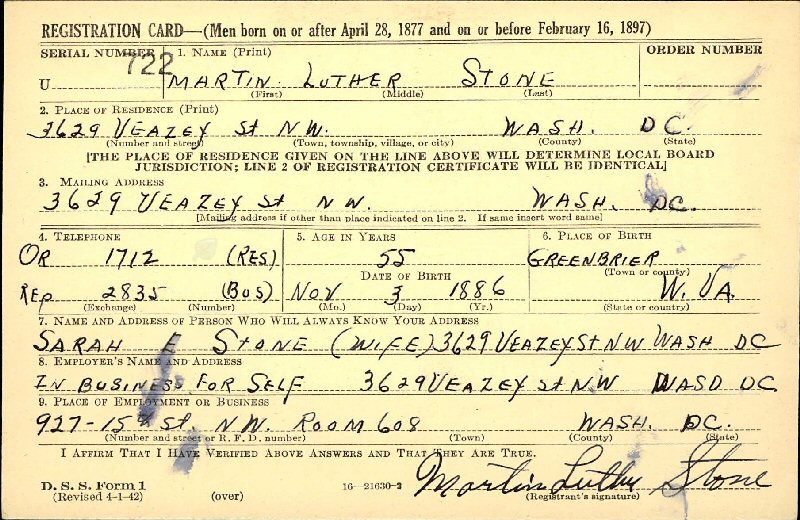 REGISTRATION CARD—(Men born on or after April 28, 1877 and on or before February 16, 1897)
SERIAL NUMBER 1. NAME (Print) ORDER NUMBER
722
U MARTIN LUTHER STONE
(First) (Middle) (Last)
2. PLACE OF RESIDENCE (Print)
3629 VEAZEY St N.W. WASH. D.C.
(Number and street) (Town, township, village, or city) (County) (State)
[THE PLACE OF RESIDENCE GIVEN ON THE LINE ABOVE WILL DETERMINE LOCAL BOARD
JURISDICTION; LINE 2 OF REGISTRATION CERTIFICATE WILL BE IDENTICAL]
3. MAILING ADDRESS
3629 VEAZEY St N.W. WASH. DC.
[Mailing address if other than place indicated on line 2. If same insert word same]
4. TELEPHONE 5. AGE IN YEARS 6. PLACE OF BIRTH
OR 1712 (RES) 55 GREENBRIER
DATE OF BIRTH (Town or county)
REP 2835 (BUS) NOV 3 1886 W. VA.
(Exchange) (Number) (Mo.) (Day) (Yr.) (State or country)
7. NAME AND ADDRESS OF PERSON WHO WILL ALWAYS KNOW YOUR ADDRESS
SARAH E STONE (WIFE) 3629 VEAZEY St NW WASH DC
8. EMPLOYER'S NAME AND ADDRESS
IN BUSINESS FOR SELF 3629 VEAZEY St NW WASD DC
9. PLACE OF EMPLOYMENT OR BUSINESS
927-15th St. NW. ROOM 608 WASH. DC.
(Number and street or R. F. D. number) (Town) (County) (State)
I AFFIRM THAT I HAVE VERIFIED ABOVE ANSWERS AND THAT THEY ARE TRUE.
D. S. S. Form 1
(Revised 4-1-42) (over) 16—21630-2 Martin Luther Stone
(Registrant's signature)